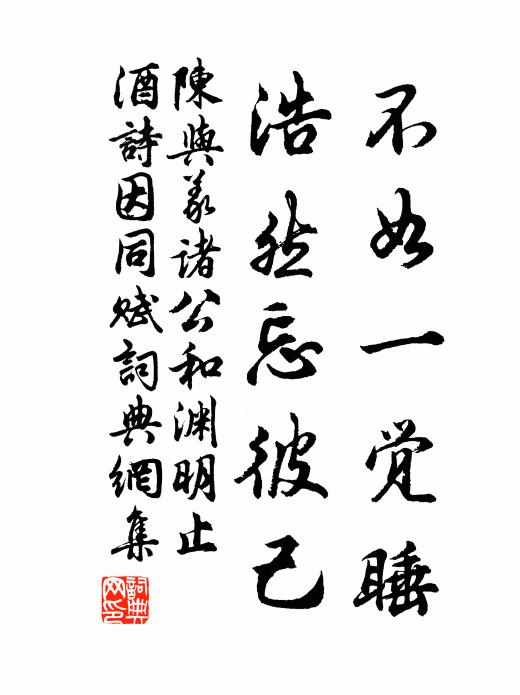 不如一覚睡
浩然忘彼己
陳與義諸公和淵明止
酒詩因同賦詞典網集
詞典网印